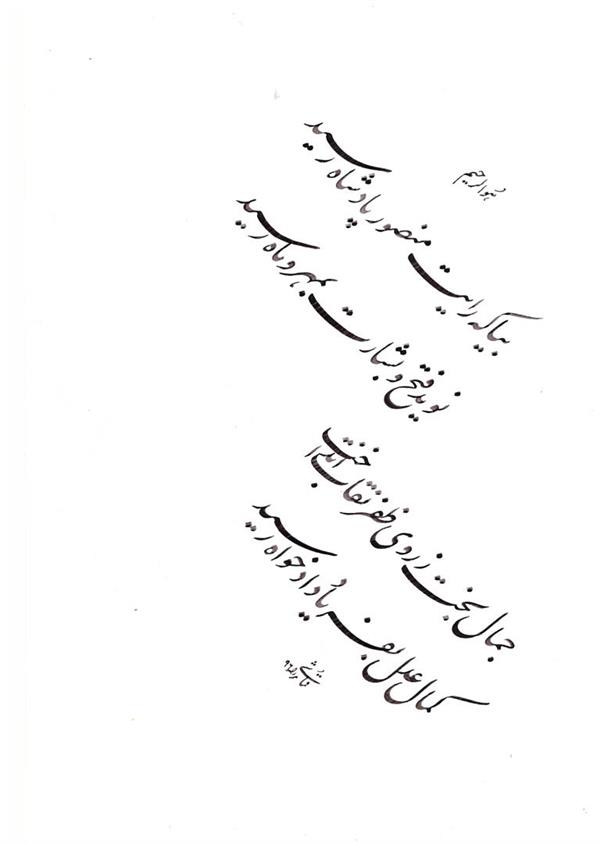 هوالرحیم
بیا که رایت منصور پادشاه رسید
نوید فتح و بشارت بمهر و ماه رسید
جمال بخت ز روی ظفر نقاب انداخت
کمال عدل بفریاد دادخواه رسید
۹۶